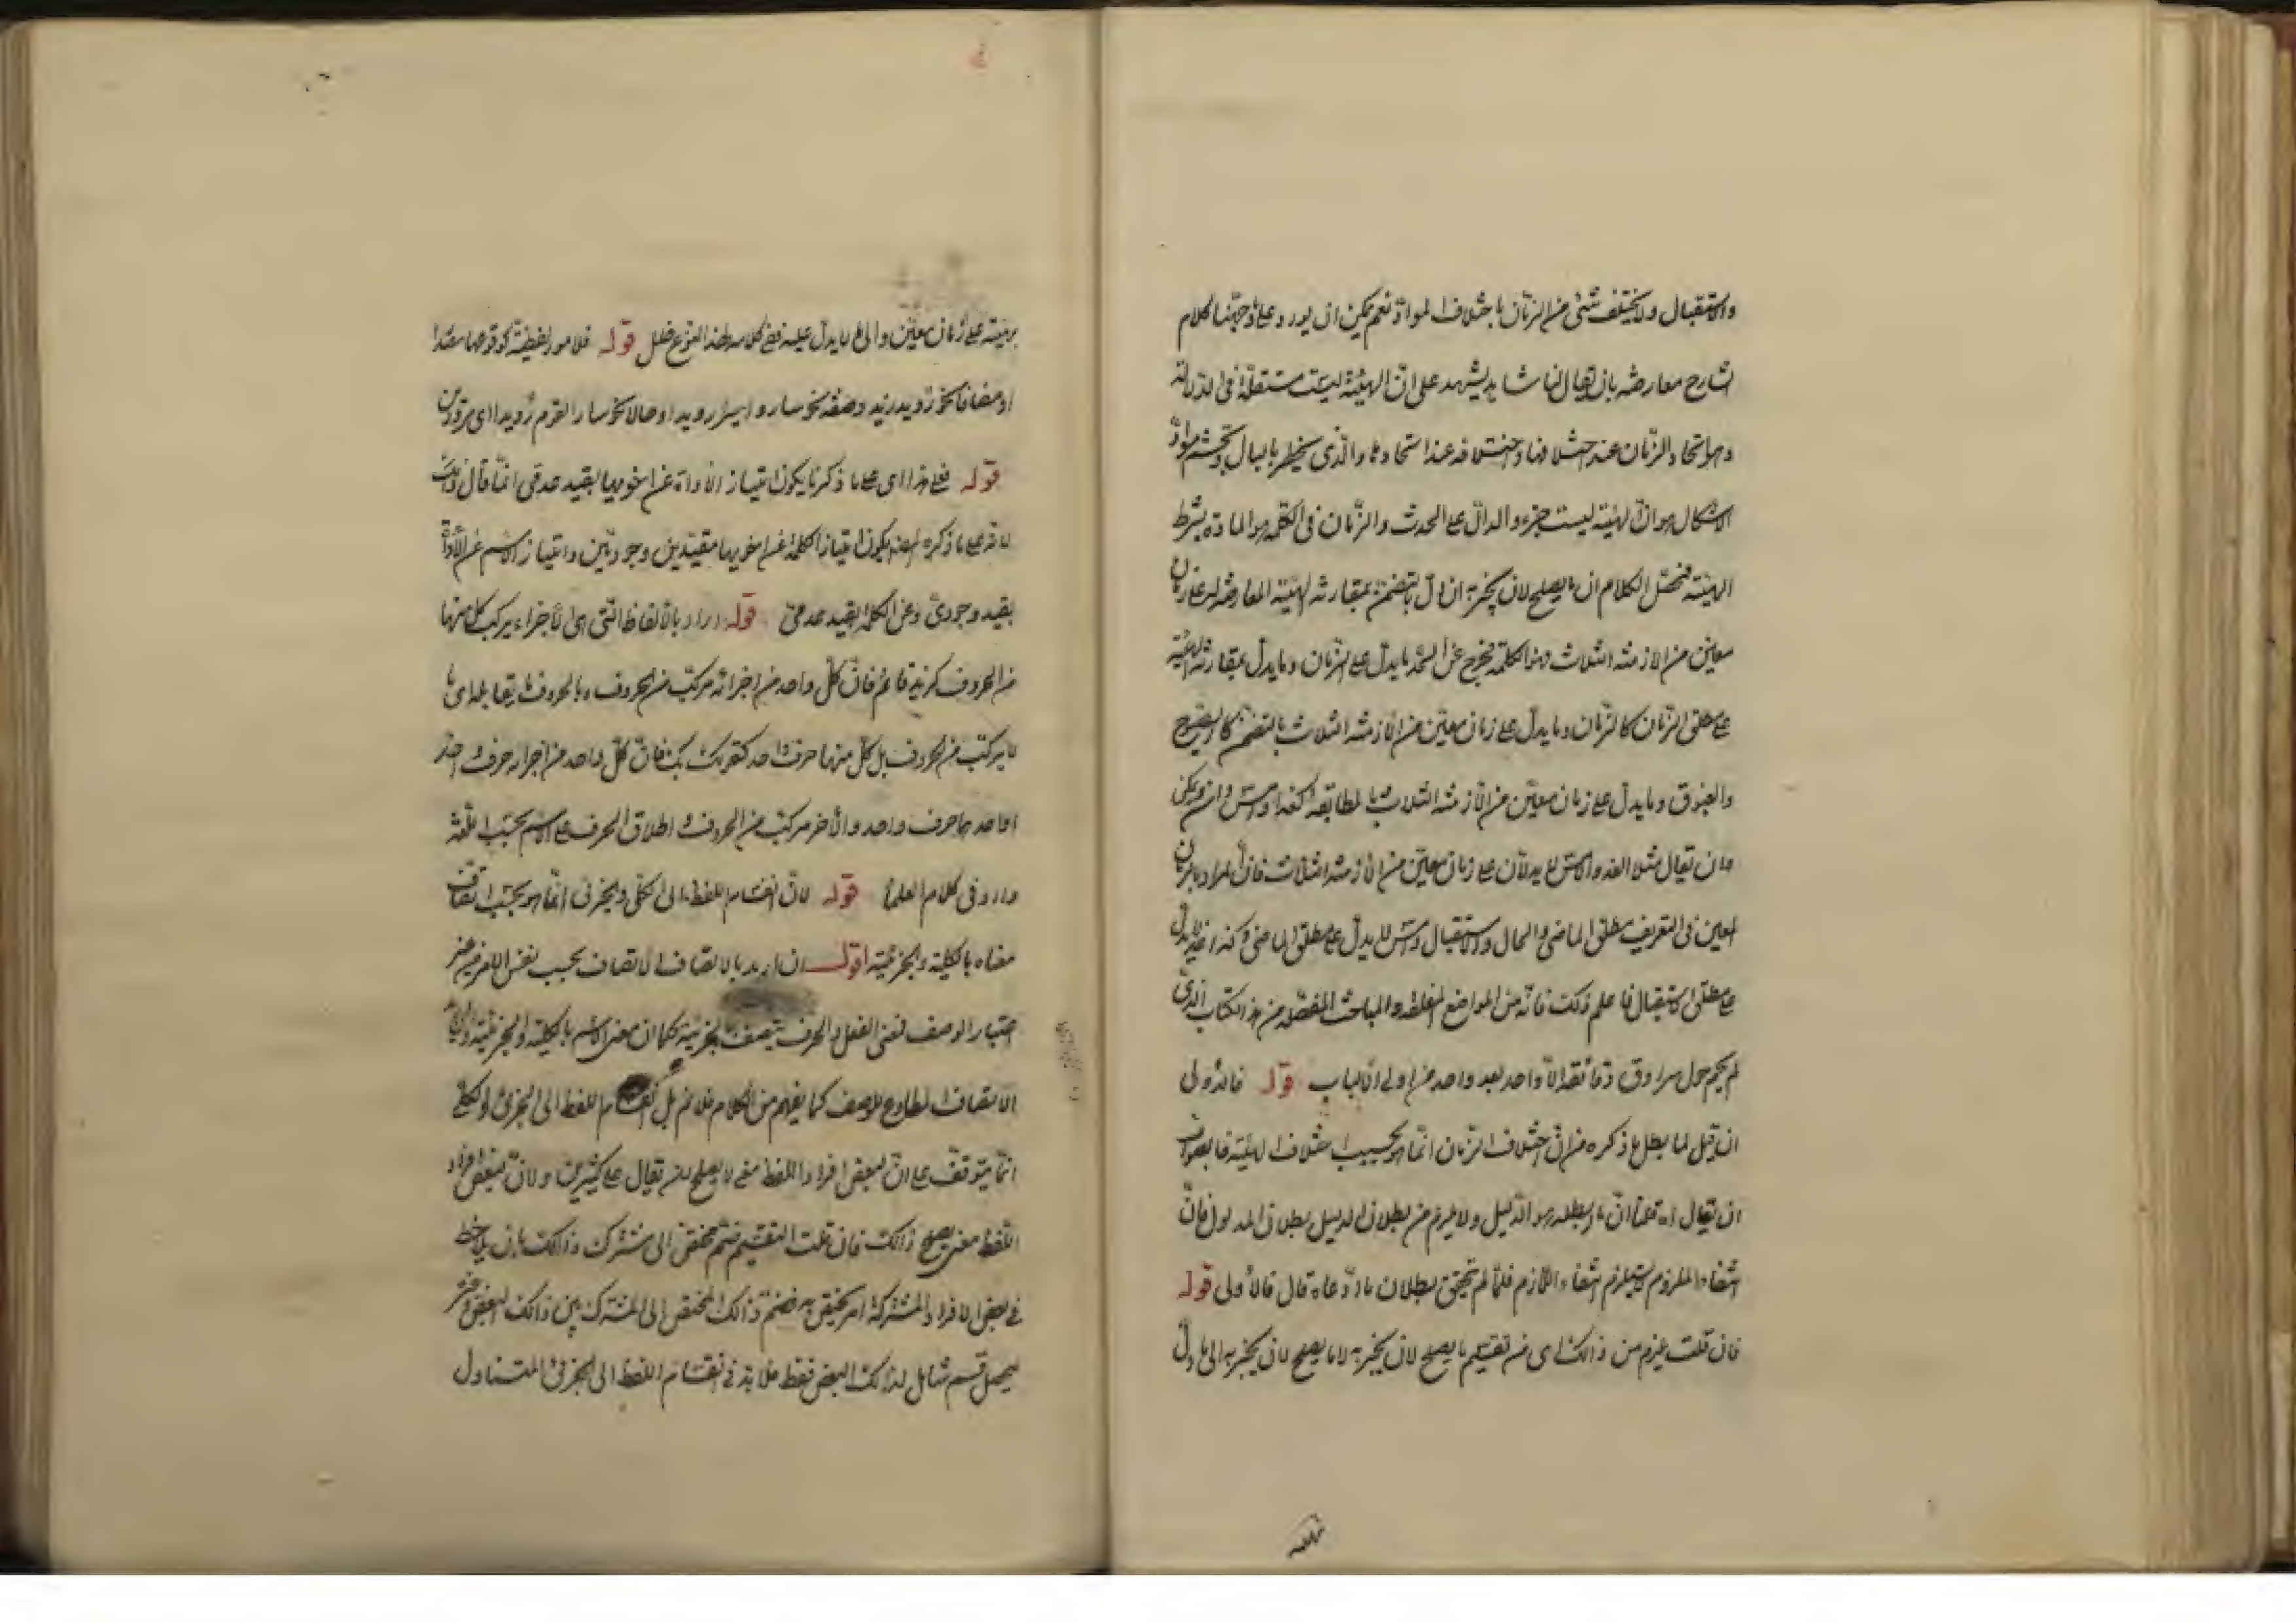 والاستقبال ولا يختلف شئ من الزمان باختلاف المواد نعم يمكن ان يورد على توجيهنا لكلام
الشارح معارضة بان يقال لنا شاهد يشهد على ان الهيئة ليست مستقلة فى الدلالة
وهو اتحاد الزمان عند اختلافها واختلافه عند اتحادها والذى يخطر بالبال
الاشكال هو ان الهيئة ليست جزء والدال على الحدث والزمان فى الكلمة هو المادة بشرط
الهيئة فمحصل الكلام ان ما يصلح لان يخبر به ان دل بتضمنه بمقارنة الهيئة العارضة له على زمان
معين من الازمنة الثلاث فهو الكلمة فخرج عن الحد ما يدل على الزمان وما يدل بمقارنة الهيئة
على مطلق الزمان كالزمان وما يدل على زمان معين من الازمنة الثلاث بالتضمن كالصبوح
والغبوق وما يدل على زمان معين من الازمنة الثلاث بالمطابقة كغد وامس ويمكن
ان يقال مثلا الغد والامس لا يدلان على زمان معين من الازمنة الثلاث فان المراد بالزمان
المعين فى التعريف مطلق الماضى والحال والاستقبال وامس لا يدل على مطلق الماضى وكذا غد لا يدل
على مطلق الاستقبال فاعلم ذلك فانه من المواضع المغلقة والمباحث المفصلة من هذا الكتاب الذى
لم يحم حول سرادق دقائقه الا واحد بعد واحد من اولى الالباب قوله فالاولى
ان قيل لما بطل ما ذكره من ان اختلاف الزمان انما هو بحسب اختلاف الهيئة فالصواب
ان يقال اه قلنا ان ما ابطله هو الدليل ولا يلزم من بطلان الدليل بطلان المدلول فان
انتفاء الملزوم لا يستلزم انتفاء اللازم فلما لم يتحقق بطلان ما ادعاه قال فالاولى قوله
فان قلت يلزم من ذلك اى من تقسيم ما يصلح لان يخبر به لا ما يصلح لان يخبر به الى ما دل
بهيئته على زمان معين والى ما لا يدل عليه ففى كلامه لهذا النوع خلل قوله فلامور لفظية كوقوعها مبتدا
او مضافا نحو رويد زيد وصفة نحو ساروا سيرا رويدا او حالا نحو سار القوم رويدا اى مرودين
قوله فعلى هذا اى على ما ذكرنا يكون امتياز الاداة عن اخويها بقيد عدمى انما قال ذلك
لانه على ما ذكره المصنف يكون امتياز الكلمة عن اخويها بقيدين وجوديين وامتياز الاسم عن الاداة
بقيد وجودى وعن الكلمة بقيد عدمى قوله اراد بالالفاظ التى هى الاجزاء يركب كل منها
من الحروف كزيد قائم فان كل واحد من اجزائه مركب من الحروف وبالحروف ما يقابله اى ما
لا يركب من الحروف بل كل منها حرف واحد كقولك بك فان كل واحد من اجزائه حرف واحد
او احدهما حرف واحد والآخر مركب من الحروف واطلاق الحرف على الاسم بحسب اللغة
وارد فى كلام العلماء قوله لان انقسام اللفظ الى الكلى والجزئى انما هو بحسب اتصاف
معناه بالكلية والجزئية اقول ان اريد بالاتصاف الاتصاف بحسب نفس الامر من غير
اعتبار الوصف فمعنى الفعل والحرف يتصف بالجزئية كما ان معنى الاسم بالكلية والجزئية وان
الاتصاف المطاوع للوصف كما يفهم من الكلام فلا نم بل انقسام اللفظ الى الجزئى والكلى
انما يتوقف على ان لبعض افراد اللفظ معنى لا يصلح لان يقال على كثيرين ولان لبعض افراد
اللفظ معنى يصلح ذالك فان قلت التقسيم ضم مختص الى مشترك وذالك بان يلاحظ
فى بعض الافراد المشتركة امر يختص به فضم ذالك المختص الى المشترك بين ذالك البعض وغيره
ليحصل قسم شامل لذالك البعض فقط فلا بد فى انقسام اللفظ الى الجزئى المتناول